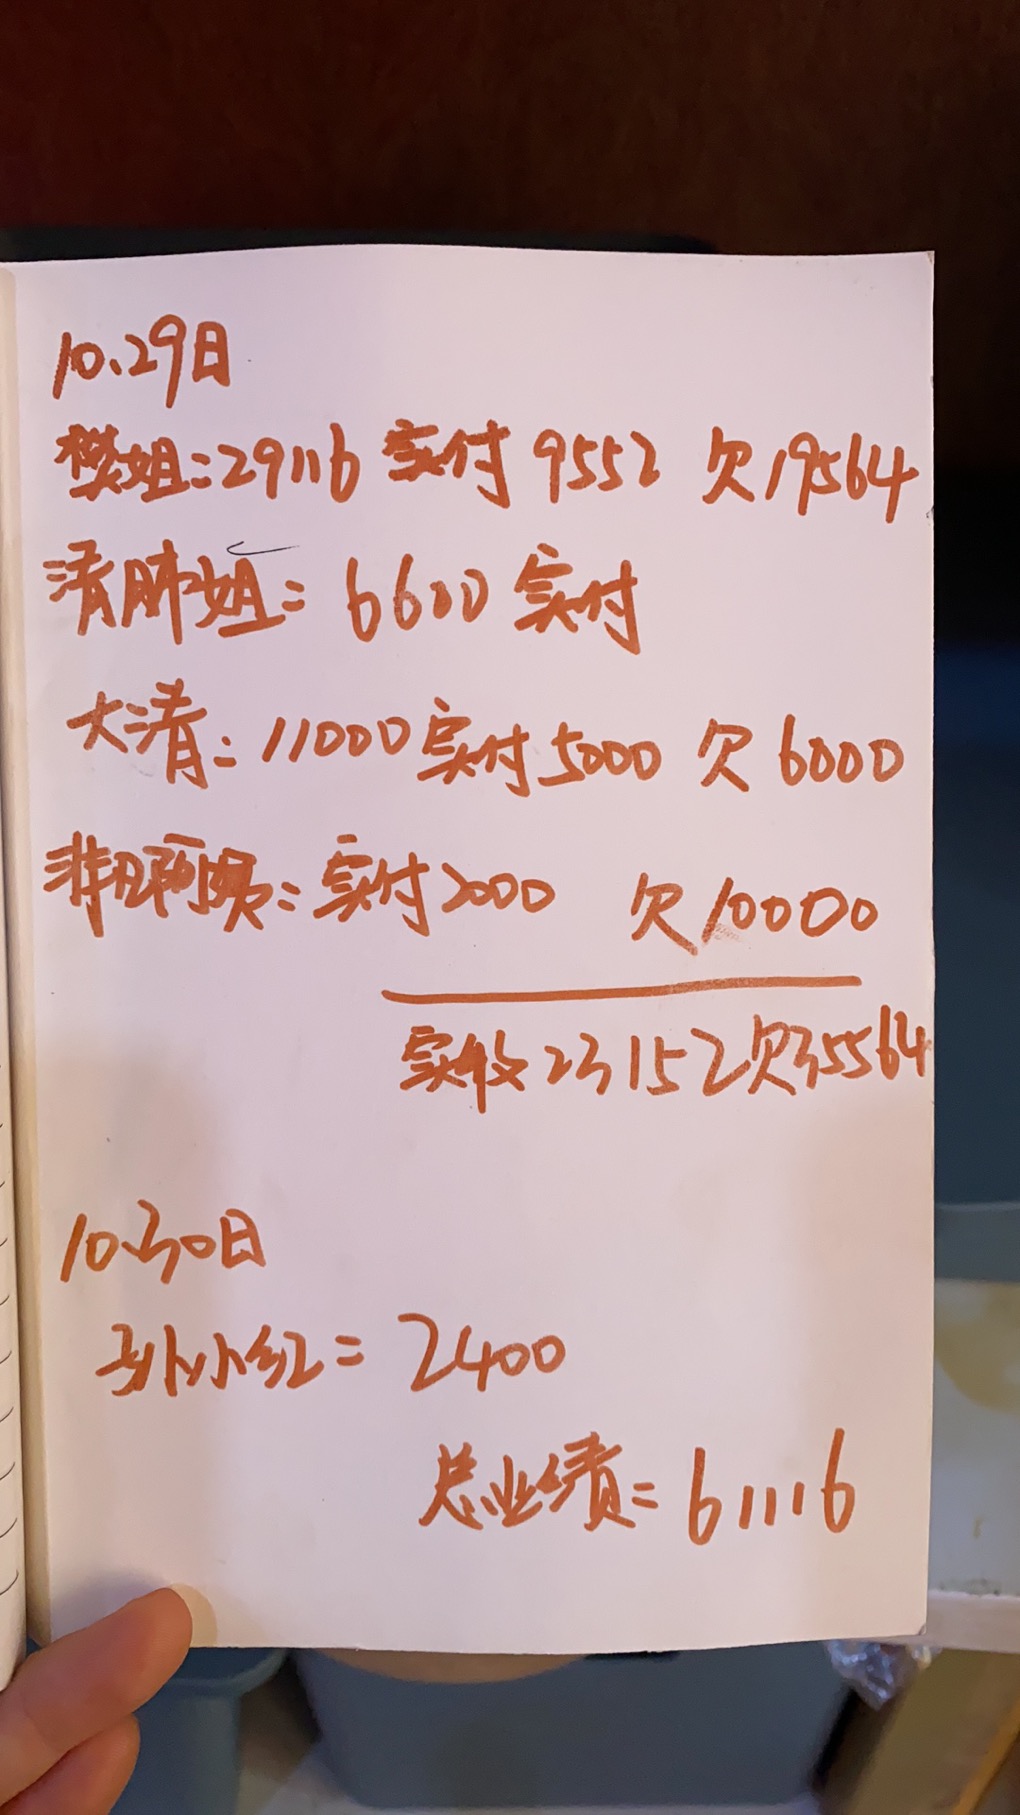 10.29日
樊姐:29116 实付 9552 欠19564
清肺姐: 6600 实付
大清: 11000 实付5000 欠 6000
非凡 : 实付2000 欠10000
实收 23152欠35564
10.30日
孙小红: 2400
总业绩: 61116